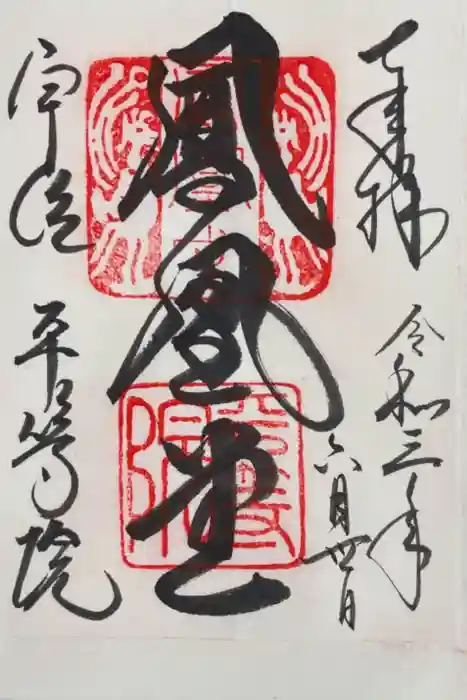 奉拝
令和三年
六月
日
鳳凰堂
宇治
平等院